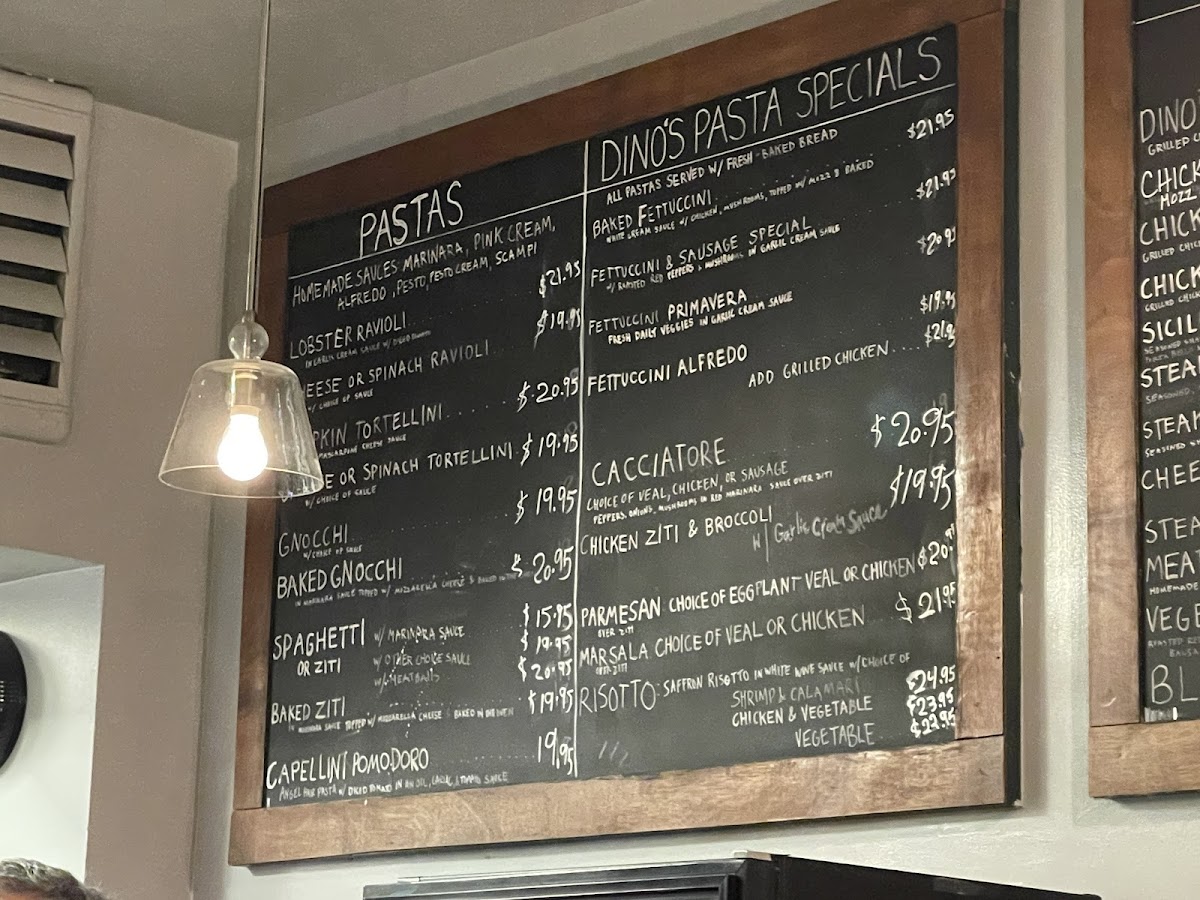 PASTAS
HOMEMADE SAUCES: MARINARA, PINK CREAM,
ALFREDO, PESTO, PESTO CREAM, SCAMPI
LOBSTER RAVIOLI $21.95
IN GARLIC CREAM SAUCE W/ DICED
EESE OR SPINACH RAVIOLI $19.95
W/ CHOICE OF SAUCE
PKIN TORTELLINI $20.95
MASCARPONE CHEESE SAUCE
SE OR SPINACH TORTELLINI $19.95
W/ CHOICE OF SAUCE
GNOCCHI $19.95
W/ CHOICE OF SAUCE
BAKED GNOCCHI $20.95
IN MARINARA SAUCE TOPPED W/ MOZZARELLA CHEESE & BAKED IN THE
SPAGHETTI W/ MARINARA SAUCE $15.95
OR ZITI W/ OTHER CHOICE SAUCE $19.95
W/ MEATBALLS $20.95
BAKED ZITI $19.95
MARINARA SAUCE TOPPED W/ MOZZARELLA CHEESE & BAKED IN THE OVEN
CAPELLINI POMODORO 19.95
ANGEL HAIR PASTA W/ DICED TOMATO IN AN OIL, GARLIC, & TOMATO SAUCE
DINO'S PASTA SPECIALS
ALL PASTAS SERVED W/ FRESH-BAKED BREAD
BAKED FETTUCCINI $21.95
WHITE CREAM SAUCE W/ CHICKEN, MUSHROOMS, TOPPED W/ MOZZ & BAKED
FETTUCCINI & SAUSAGE SPECIAL $21.95
W/ ROASTED RED PEPPERS & MUSHROOMS IN GARLIC CREAM SAUCE
FETTUCCINI PRIMAVERA $20.95
FRESH DAILY VEGGIES IN GARLIC CREAM SAUCE
FETTUCCINI ALFREDO $19.95
ADD GRILLED CHICKEN $21.95
CACCIATORE $20.95
CHOICE OF VEAL, CHICKEN, OR SAUSAGE
PEPPERS, ONIONS, MUSHROOMS IN RED MARINARA SAUCE OVER ZITI
CHICKEN ZITI & BROCCOLI $19.95
W/ Garlic Cream Sauce
PARMESAN: CHOICE OF EGGPLANT VEAL OR CHICKEN $20.95
OVER ZITI
MARSALA CHOICE OF VEAL OR CHICKEN $21.95
OVER ZITI
RISOTTO: SAFFRON RISOTTO IN WHITE WINE SAUCE W/ CHOICE OF
SHRIMP & CALAMARI $24.95
CHICKEN & VEGETABLE $23.95
VEGETABLE $22.95
DINO
GRILLED C
CHICK
MOZZ
CHICK
GRILLED CHICK
CHICK
GRILLED CHICK
SICIL
STEA
SEASONED
STEAK
CHEE
STEA
MEA
HOMEMADE
VEGE
BL